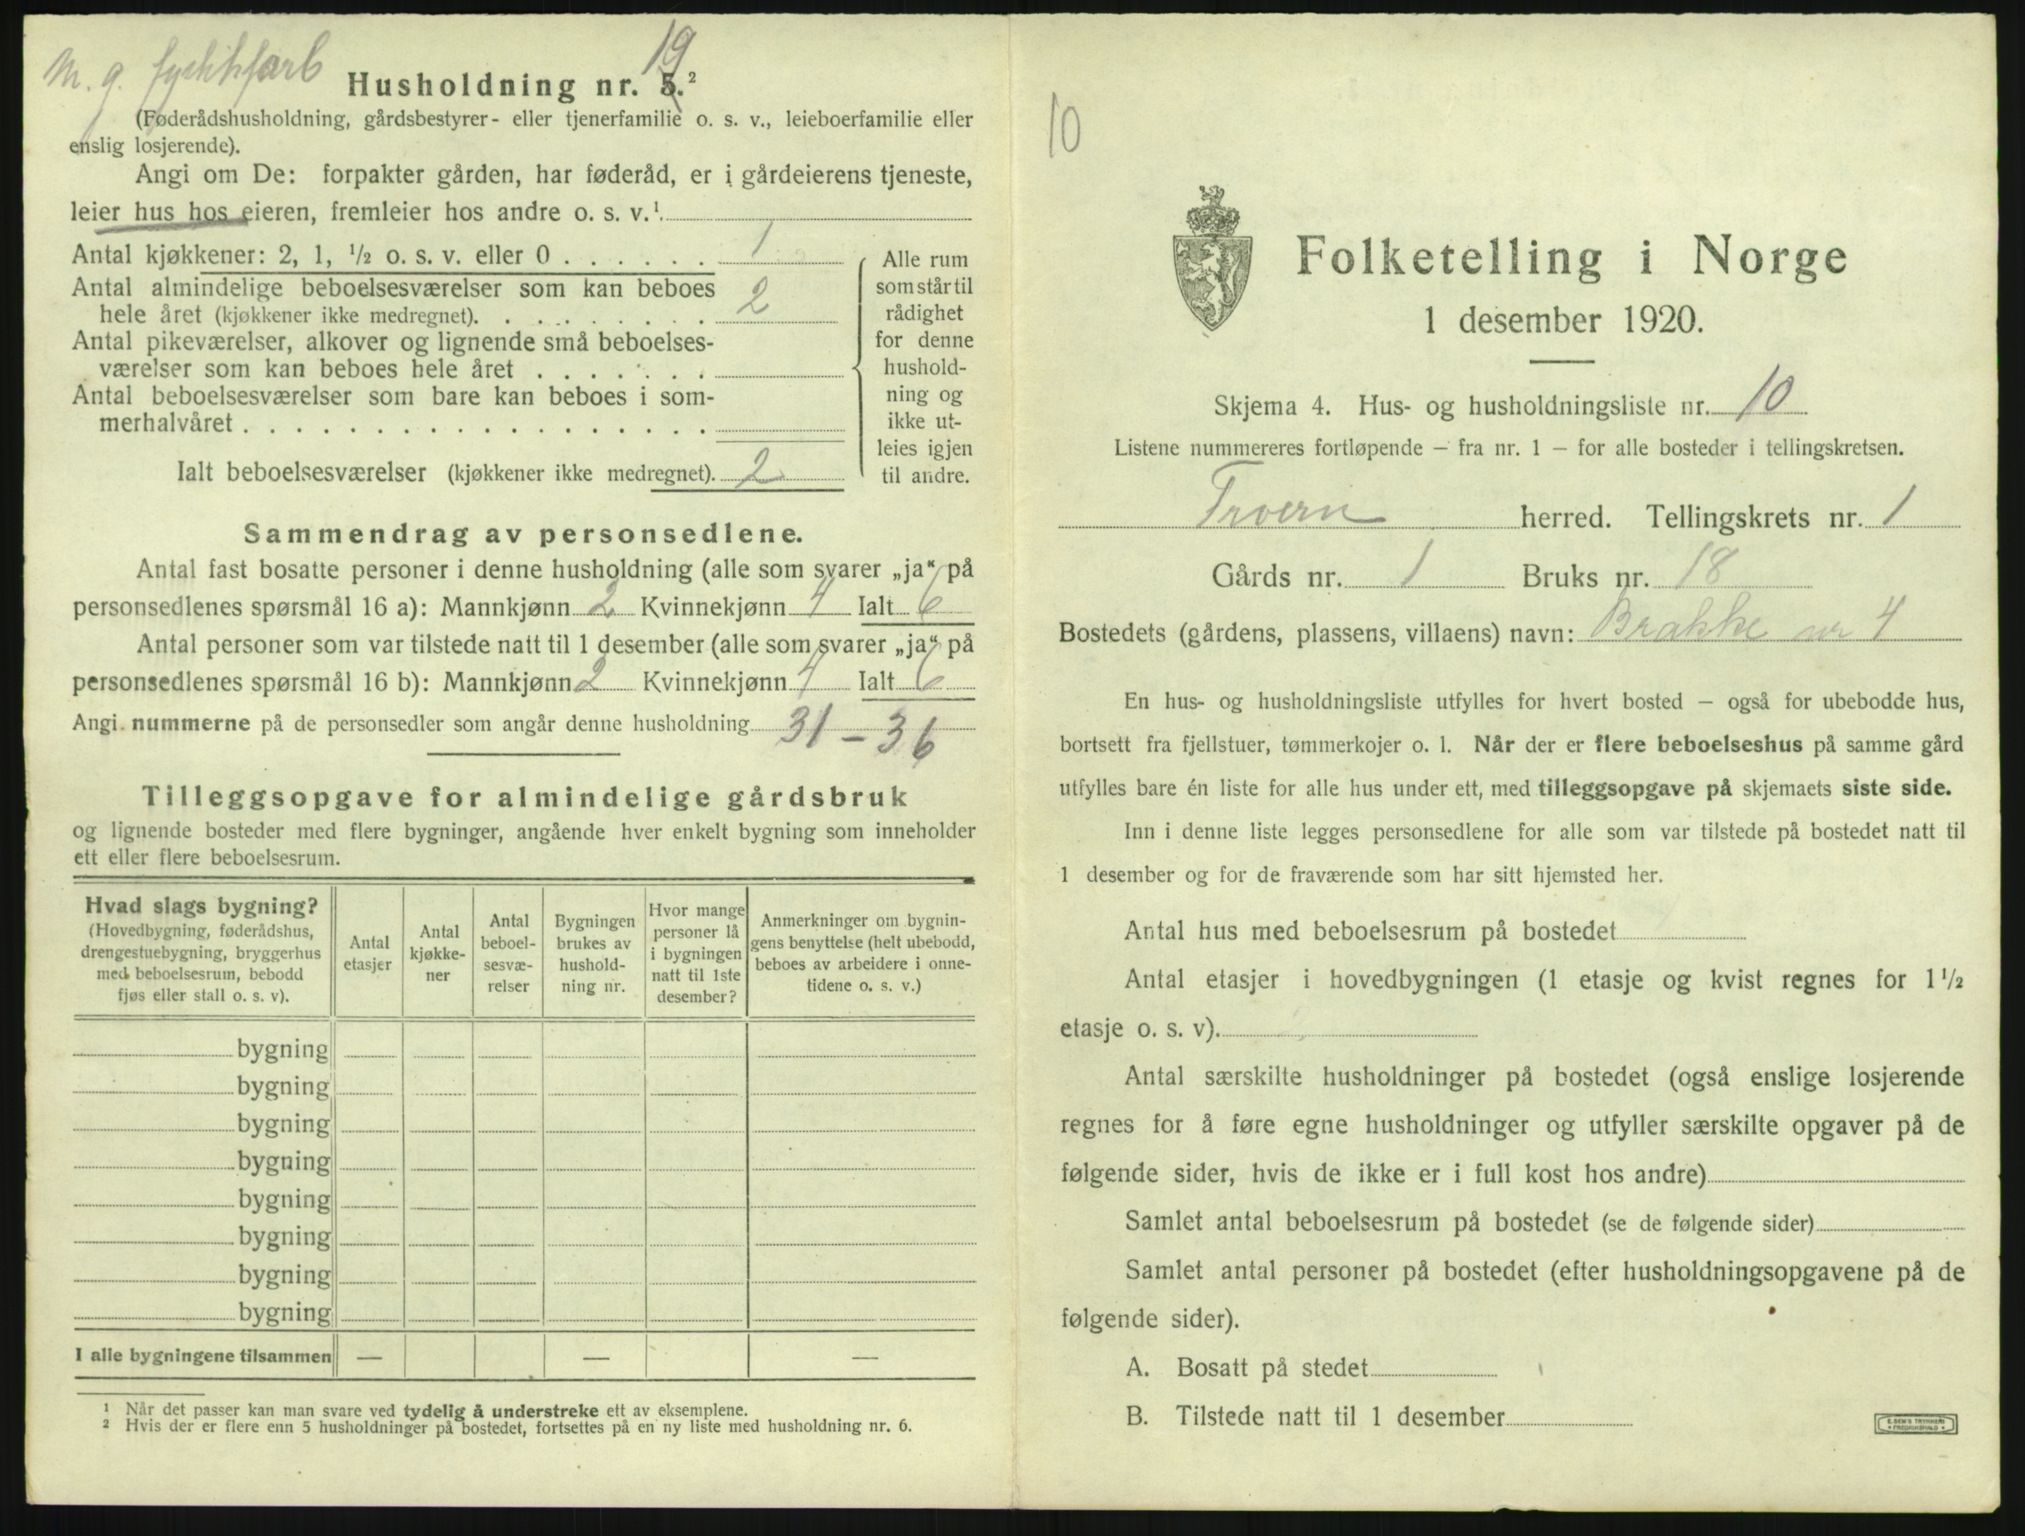 M. g.
Husholdning nr. 5.² 19
(Føderådshusholdning, gårdsbestyrer- eller tjenerfamilie o. s. v., leieboerfamilie eller
enslig losjerende).
Angi om De: forpakter gården, har føderåd, er i gårdeierens tjeneste,
leier hus hos eieren, fremleier hos andre o. s. v.¹
Antal kjøkkener: 2, 1, ½ o. s. v. eller 0 . . . . . . 1
Antal almindelige beboelsesværelser som kan beboes
hele året (kjøkkener ikke medregnet). . . . . . . . . 2
Antal pikeværelser, alkover og lignende små beboelses-
værelser som kan beboes hele året . . . . . . .
Antal beboelsesværelser som bare kan beboes i som-
merhalvåret . . . . . . . . . . . . . . . . . .
Ialt beboelsesværelser (kjøkkener ikke medregnet). 2
Alle rum
som står til
rådighet
for denne
hushold-
ning og
ikke ut-
leies igjen
til andre.
Sammendrag av personsedlene.
Antal fast bosatte personer i denne husholdning (alle som svarer „ja“ på
personsedlenes spørsmål 16 a): Mannkjønn 2 Kvinnekjønn 4 Ialt 6
Antal personer som var tilstede natt til 1 desember (alle som svarer „ja“ på
personsedlenes spørsmål 16 b): Mannkjønn 2 Kvinnekjønn 4 Ialt 6
Angi nummerne på de personsedler som angår denne husholdning 31 – 36
Tilleggsopgave for almindelige gårdsbruk
og lignende bosteder med flere bygninger, angående hver enkelt bygning som inneholder
ett eller flere beboelsesrum.
Hvad slags bygning?
(Hovedbygning, føderådshus,
drengestuebygning, bryggerhus
med beboelsesrum, bebodd
fjøs eller stall o. s. v).
Antal
etasjer
Antal
kjøkke-
ner
Antal
beboel-
sesvæ-
relser
Bygningen
brukes av
hushold-
ning nr.
Hvor mange
personer lå
i bygningen
natt til 1ste
desember?
Anmerkninger om bygnin-
gens benyttelse (helt ubebodd,
beboes av arbeidere i onne-
tidene o. s. v.)
bygning
bygning
bygning
bygning
bygning
bygning
bygning
bygning
I alle bygningene tilsammen — — —
¹ Når det passer kan man svare ved tydelig å understreke ett av eksemplene.
² Hvis der er flere enn 5 husholdninger på bostedet, fortsettes på en ny liste med husholdning nr. 6.
10
Folketelling i Norge
1 desember 1920.
Skjema 4. Hus- og husholdningsliste nr. 10
Listene nummereres fortløpende – fra nr. 1 – for alle bosteder i tellingskretsen.
Troern herred. Tellingskrets nr. 1
Gårds nr. 1 Bruks nr. 18
Bostedets (gårdens, plassens, villaens) navn: Brakke nr 4
En hus- og husholdningsliste utfylles for hvert bosted – også for ubebodde hus,
bortsett fra fjellstuer, tømmerkojer o. l. Når der er flere beboelseshus på samme gård
utfylles bare én liste for alle hus under ett, med tilleggsopgave på skjemaets siste side.
Inn i denne liste legges personsedlene for alle som var tilstede på bostedet natt til
1 desember og for de fraværende som har sitt hjemsted her.
Antal hus med beboelsesrum på bostedet
Antal etasjer i hovedbygningen (1 etasje og kvist regnes for 1½
etasje o. s. v).
Antal særskilte husholdninger på bostedet (også enslige losjerende
regnes for å føre egne husholdninger og utfyller særskilte opgaver på de
følgende sider, hvis de ikke er i full kost hos andre)
Samlet antal beboelsesrum på bostedet (se de følgende sider)
Samlet antal personer på bostedet (efter husholdningsopgavene på de
følgende sider).
A. Bosatt på stedet
B. Tilstede natt til 1 desember
E. SEM'S TRYKKERI
FREDRIKSHALD